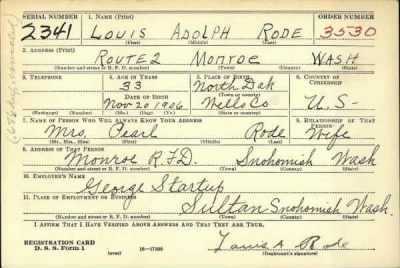 SERIAL NUMBER 1. NAME (Print) ORDER NUMBER
2341 LOUIS ADOLPH RODE 3530
(First) (Middle) (Last)
2. ADDRESS (Print)
ROUTE 2 MONROE WASH
(Number and street or R. F. D. number) (Town) (County) (State)
3. TELEPHONE 4. AGE IN YEARS 5. PLACE OF BIRTH 6. COUNTRY OF CITIZENSHIP
33 North Dak
DATE OF BIRTH (Town or county)
Nov 20 1906 Wells Co U.S-
(Exchange) (Number) (Mo.) (Day) (Yr.) (State or country)
7. NAME OF PERSON WHO WILL ALWAYS KNOW YOUR ADDRESS 8. RELATIONSHIP OF THAT PERSON
Mrs. Pearl Rode Wife
(Mr., Mrs., Miss) (First) (Middle) (Last)
9. ADDRESS OF THAT PERSON
Monroe R.F.D. Snohomish Wash
(Number and street or R. F. D. number) (Town) (County) (State)
10. EMPLOYER'S NAME
George Startup
11. PLACE OF EMPLOYMENT OR BUSINESS
Sultan Snohomish Wash.
(Number and street or R. F. D. number) (Town) (County) (State)
I AFFIRM THAT I HAVE VERIFIED ABOVE ANSWERS AND THAT THEY ARE TRUE.
REGISTRATION CARD
D. S. S. Form 1 16—17105 Louis A Rode
(Registrant's signature)